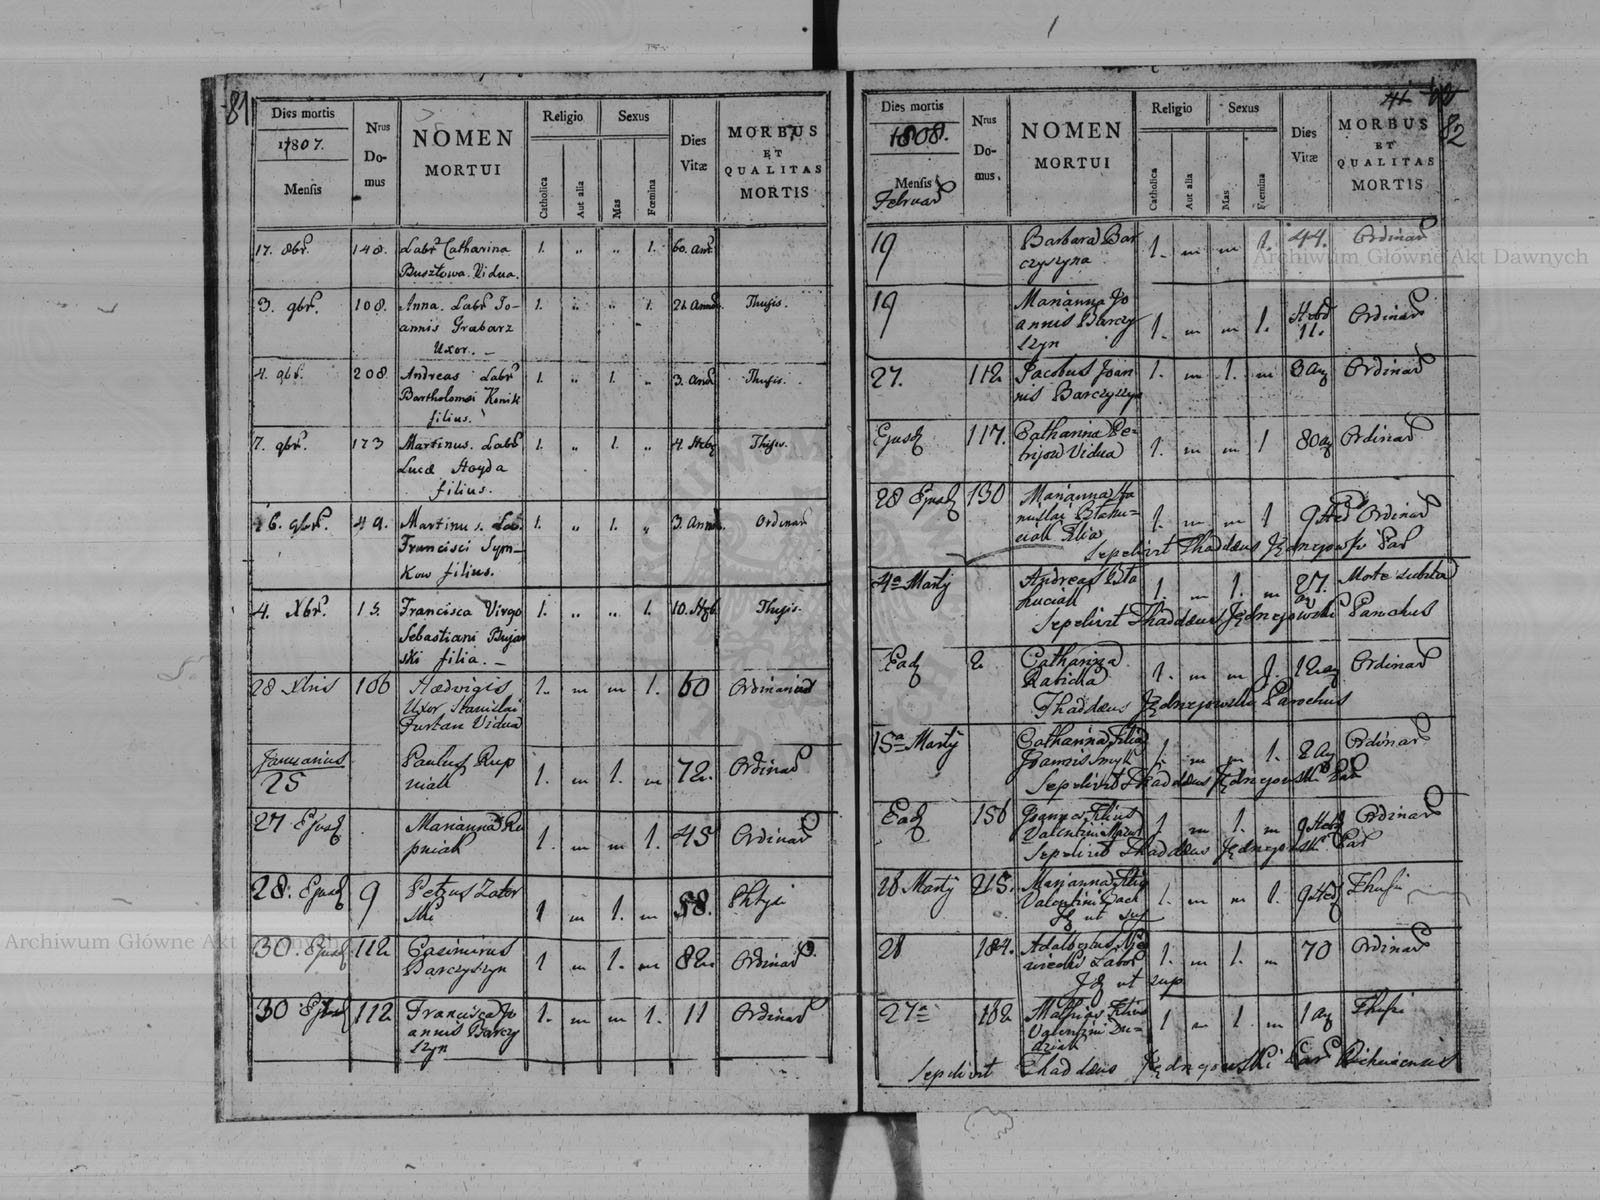 81
Dies mortis
1807.
Mensis
Nrus
Do-
mus
NOMEN
MORTUI
Religio
Catholica
Aut alia
Sexus
Mas
Fœmina
Dies
Vitæ
MORBUS
ET
QUALITAS
MORTIS
17. 8br. 148. Labr Catharina 1. „ „ 1. 60. An
Busztowa. Vidua.
3. 9br. 108. Anna. Labr Jo- 1. „ „ 1. 21. Thysis.
annis Grabarz
Uxor. –
4. 9br. 208. Andreas Labr 1. „ 1. „ 3. Thysis.
Bartholomei Konik
filius.
7. 9br. 173 Martinus. Labr 1. „ 1. „ 4. Thysis.
Lucæ Hoyda
filius.
16. 9br. 49. Martinus. Lab. 1. „ 1. „ 3. Ordinar
Francisci Sym-
kow filius.
4. Xbr. 15. Francisca Virgo 1. „ „ 1. 10. Thysis.
Sebastiani Bujar
ski filia. –
28 Xbris 106 Hædvigis 1. „ „ 1. 60 Ordinaria
Uxor Stanislai
Furtan Vidua
Januarius
25 Paulus Rup 1. „ 1. „ 72. Ordinar
niak
27 Ejusd Marianna Ru 1. „ „ 1. 45 Ordinar
pniak
28. Ejusd 9 Petrus Zator 1 „ 1. „ 58. Phtysi
ski
30. Ejusd 112 Casimirus 1 „ 1. „ 82. Ordinar
Barczyszyn
30 Ejusd 112 Francisca Jo 1. „ „ 1. 11 Ordinar
annis Barczy
szyn
82
Dies mortis
1808.
Mensis
Februar
Nrus
Do-
mus.
NOMEN
MORTUI
Religio
Catholica
Aut alia
Sexus
Mas
Fœmina
Dies
Vitæ
MORBUS
ET
QUALITAS
MORTIS
19 Barbara Bar 1. „ „ 1. 44. Ordinar
czyszyna
19 Marianna Jo 1. „ „ 1. Hebd Ordinar
annis Barczy 11.
szyn
27. 112 Jacobus Joan 1. „ 1. „ 3 Ordinar
nis Barczyszyn
Ejusd 117. Catharina Pe- 1. „ „ 1 80 Ordinar
trijow Vidua
28 Ejusd 130 Marianna 1. „ „ 1 9 Hed Ordinar
Filia
Sepelivit Thaddæus Jędrzejowski Par
4a Martij Andreas 1. „ 1. „ 27. Morte subita
Sepelivit Thaddæus Jędrzejowski Parochus
Ead 2 Catharina 1. „ „ 1. 12 Ordinar
Thaddæus Jędrzejowski Parochus
15a Martij Catharina Filia 1. „ „ 1. 2 Ordinar
Joannis Smyk
Sepelivit Thaddæus Jędrzejowski Par
Ead 156 Joannes Filius 1. „ 1. „ 9 Hebd Ordinar
Valentini
Sepelivit Thaddæus Jędrzejowski Par
26 Martij 215. Marianna Filia 1. „ „ 1. 9 Hed Thysi
Valentini
ut sup
28 184. Adalbertus 1. „ 1. „ 70 Ordinar
Labor
ut sup
27a 182 Mathias Filius 1 „ 1. „ 1 Thysi
Valentini Du-
dziak
Sepelivit Thaddæus Jędrzejowski Par
Archiwum Główne Akt Dawnych
Archiwum Główne Akt Dawnych